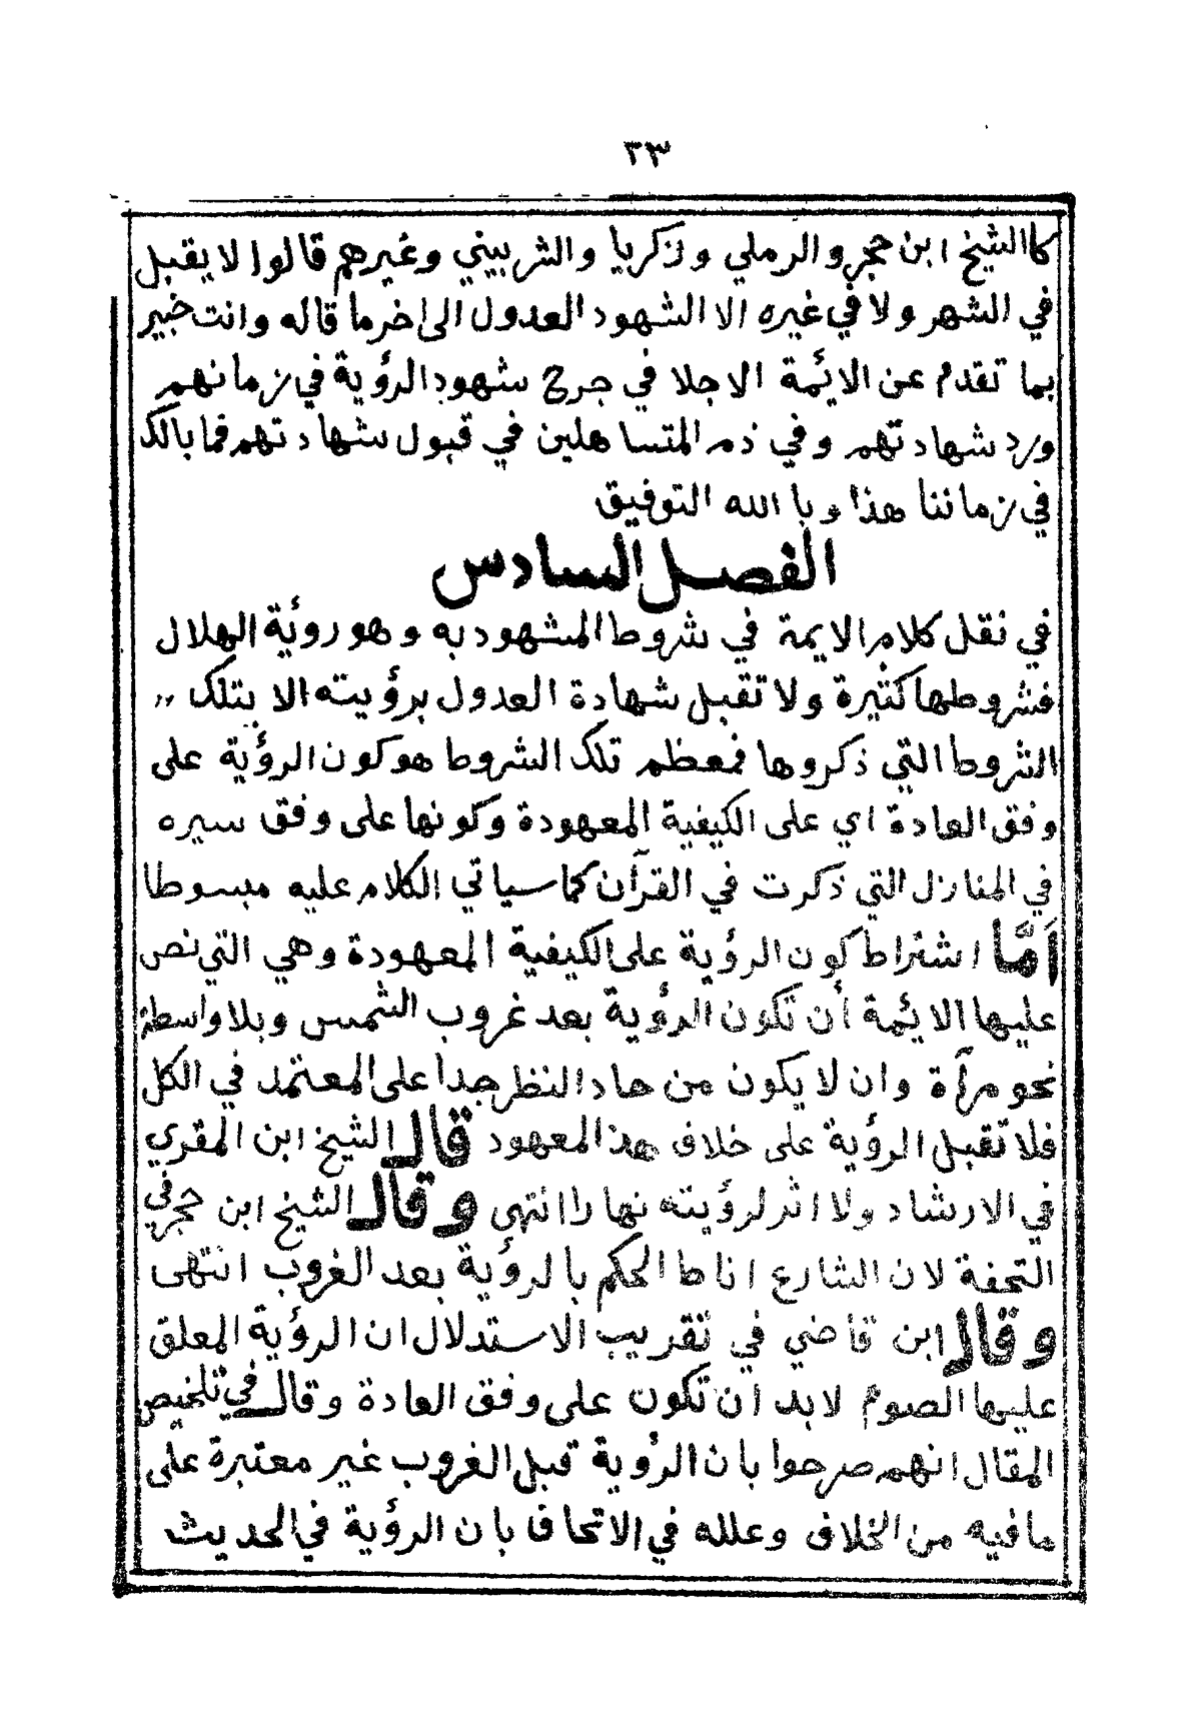 ٢٣
كالشيخ ابن حجر والرملي وزكريا والشربيني وغيرهم قالوا لا يقبل
في الشهر ولا في غيره الا الشهود العدول الى اخر ما قاله وانت خبير
بما تقدم عن الائمة الاجلا في جرح شهود الرؤية في زمانهم
ورد شهادتهم وفي ذم المتساهلين في قبول شهادتهم فما بالك
في زماننا هذا وبا الله التوفيق
الفصل السادس
في نقل كلام الايمة في شروط المشهود به وهو روئة الهلال
فشروطها كثيرة ولا تقبل شهادة العدول برؤيته الا بتلك ,,
الشروط التي ذكروها فمعظم تلك الشروط هو كون الرؤية على
وفق العادة اي على الكيفية المعهودة وكونها على وفق سيره
في المنازل التي ذكرت في القرآن كما سياتي الكلام عليه مبسوطا
اَمَّا اشتراط كون الرؤية على الكيفية المعهودة وهي التي نص
عليها الائمة أن تكون الرؤية بعد غروب الشمس وبلا واسطة
نحو مرآة وان لا يكون من حاد النظر جدا على المعتمد في الكل
فلا تقبل الرؤية على خلاف هذا المعهود قال الشيخ ابن المقري
في الارشاد ولا اثر لرؤيته نهارا انتهى وقال الشيخ ابن حجر في
التحفة لان الشارع اناط الحكم بالرؤية بعد الغروب انتهى
وقال ابن قاضي في تقريب الاستدلال ان الرؤية المعلق
عليها الصوم لابد ان تكون على وفق العادة وقال في تلخيص
المقال انهم صرحوا بان الرؤية قبل الغروب غير معتبرة على
ما فيه من الخلاف وعلله في الاتحاف بان الرؤية في الحديث